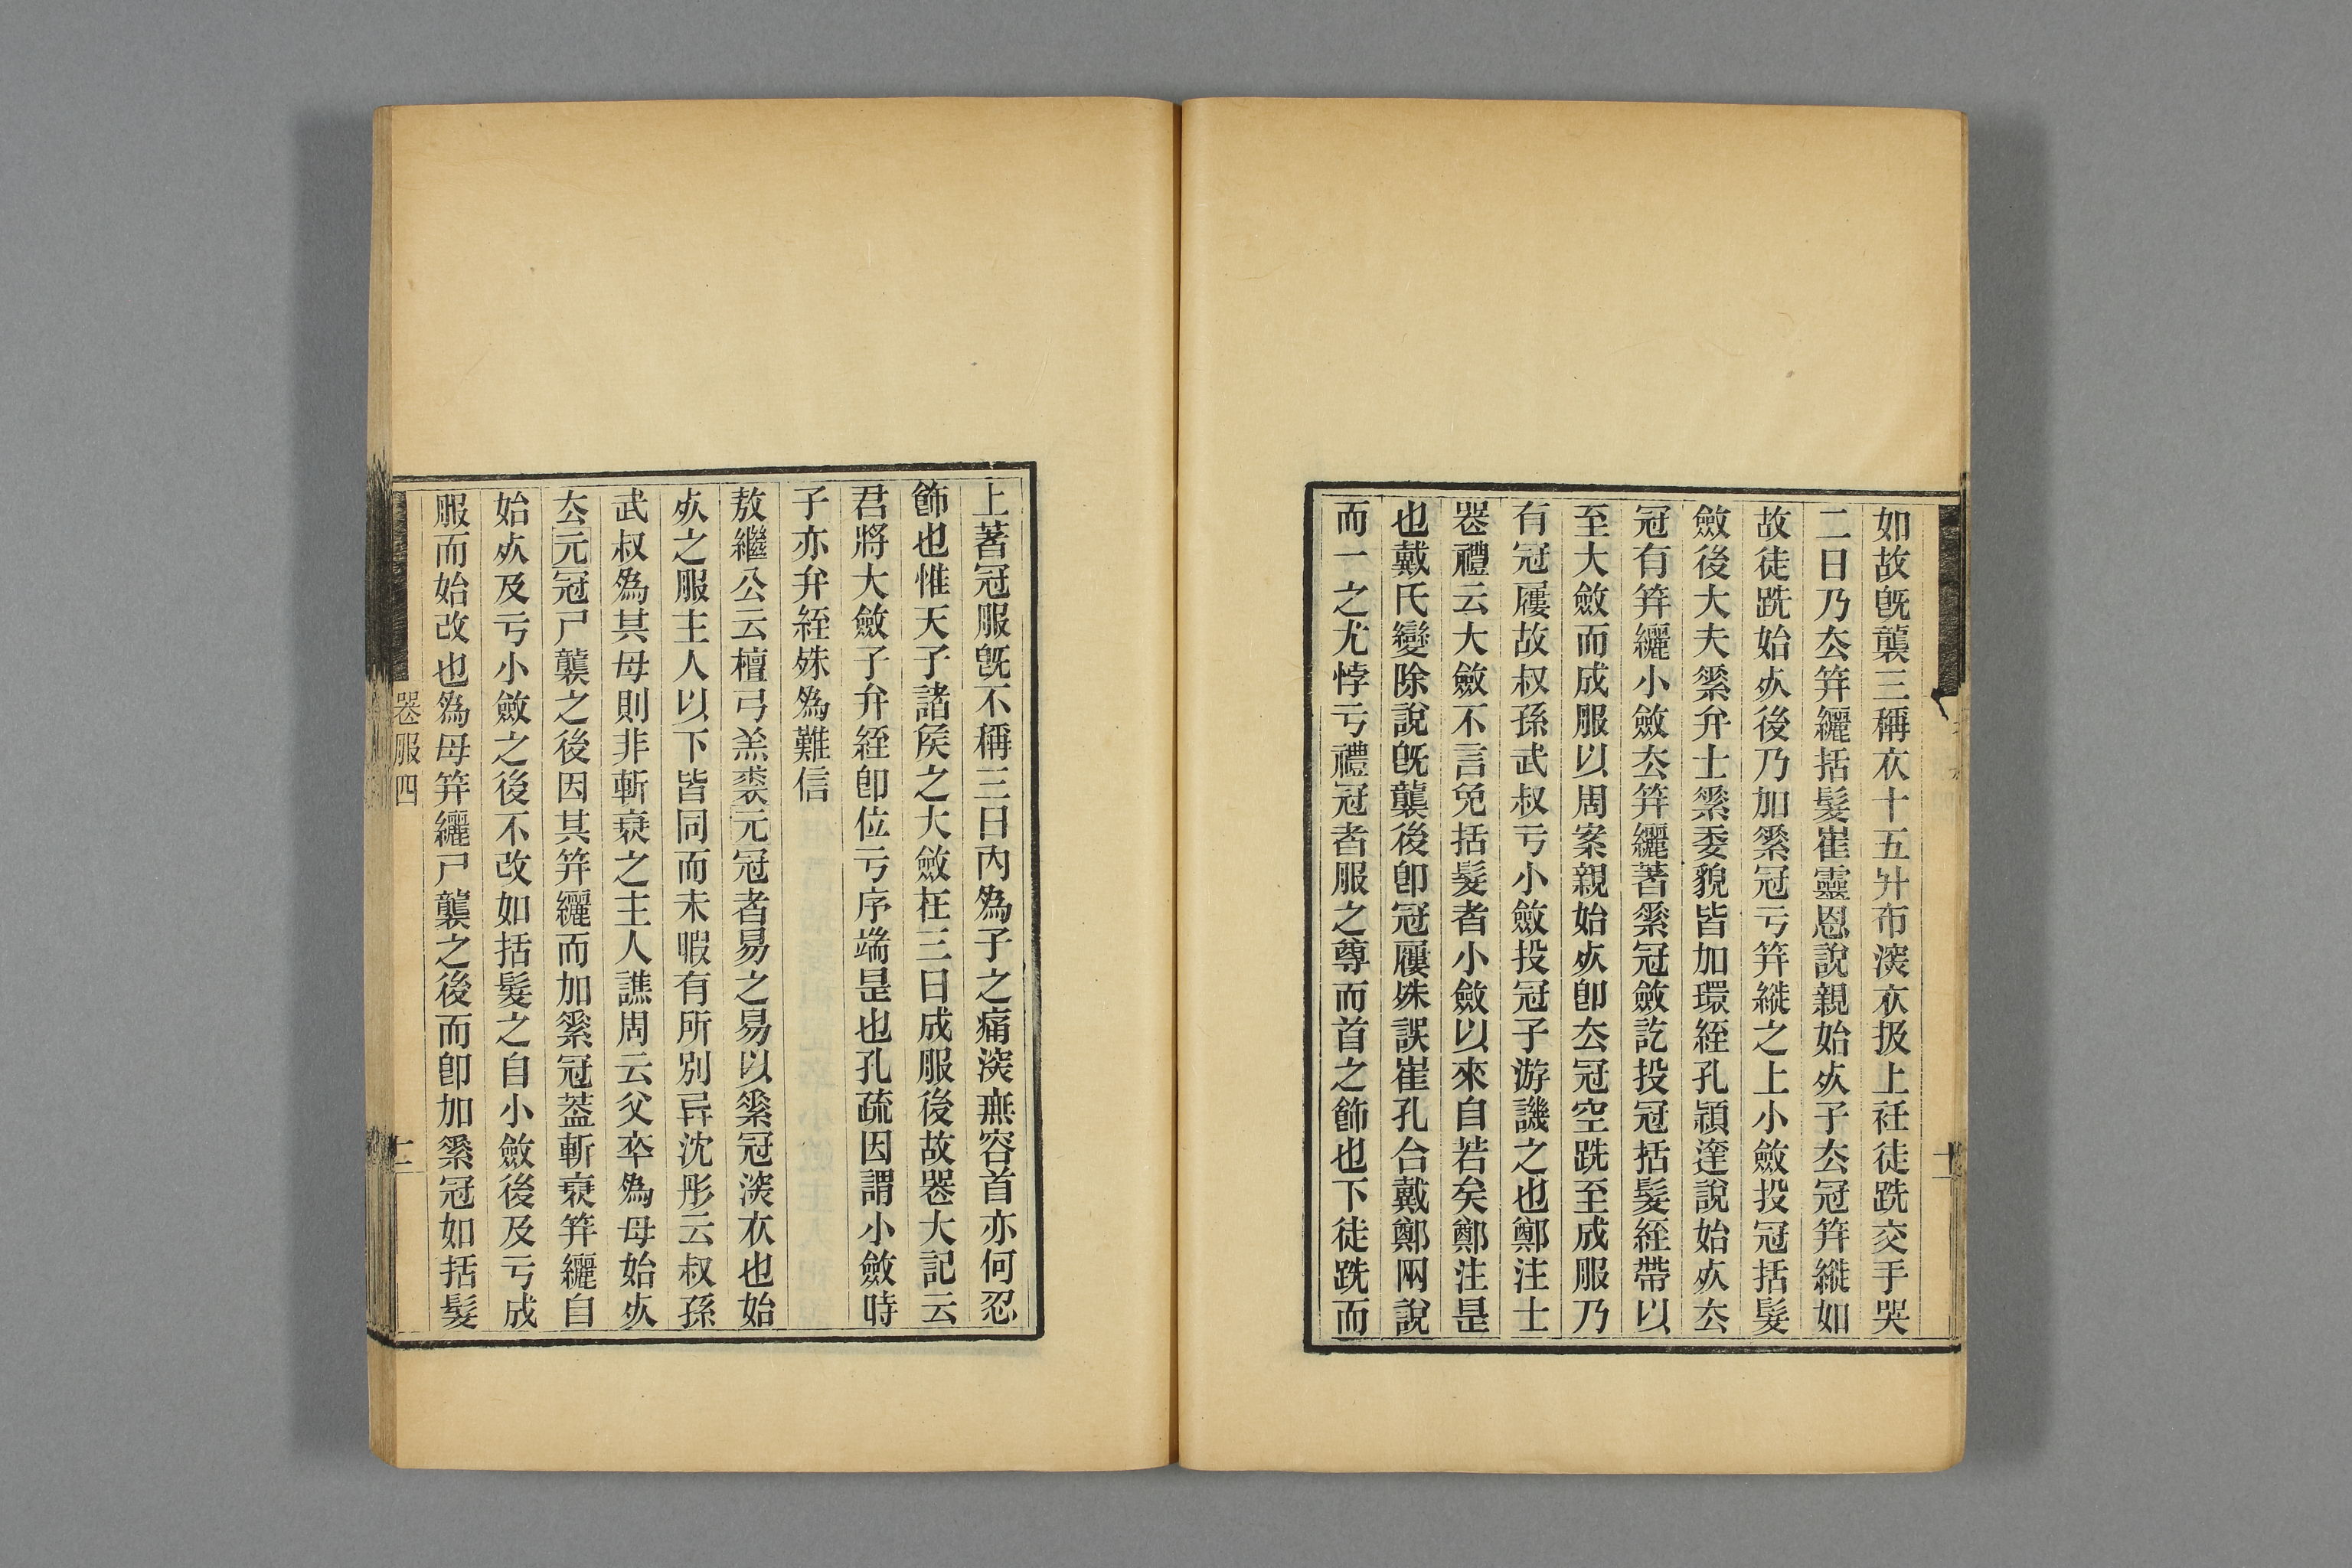 如故旣襲三稱衣十五升布深衣扱上衽徒跣交手哭
二日乃厺笄纚括髮崔靈恩說親始㱙子厺冠笄縰如
故徒跣始㱙後乃加素冠亏笄縰之上小斂投冠括髮
斂後大夫素弁士素委貌皆加環絰孔穎達說始㱙厺
冠有笄纚小斂厺笄纚著素冠斂訖投冠括髮絰帶以
至大斂而成服以周案親始㱙卽厺冠空跣至成服乃
有冠屨故叔孫武叔亏小斂投冠子游譏之也鄭注士
喪禮云大斂不言免括髮者小斂以來自若矣鄭注是
也戴氏變除說旣襲後卽冠屨殊誤崔孔合戴鄭兩說
而一之尤悖亏禮冠者服之尊而首之飾也下徒跣而
上著冠服旣不稱三日內爲子之痛深無容首亦何忍
飾也惟天子諸矦之大斂在三日成服後故喪大記云
君將大斂子弁絰卽位亏序端是也孔疏因謂小斂時
子亦弁絰殊爲難信
敖繼公云檀弓羔裘元冠者易之易以素冠深衣也始
㱙之服主人以下皆同而未暇有所別异沈彤云叔孫
武叔爲其母則非斬衰之主人譙周云父卒爲母始㱙
厺元冠尸襲之後因其笄纚而加素冠葢斬衰笄纚自
始㱙及亏小斂之後不改如括髮之自小斂後及亏成
服而始改也爲母笄纚尸襲之後而卽加素冠如括髮
喪服四
二